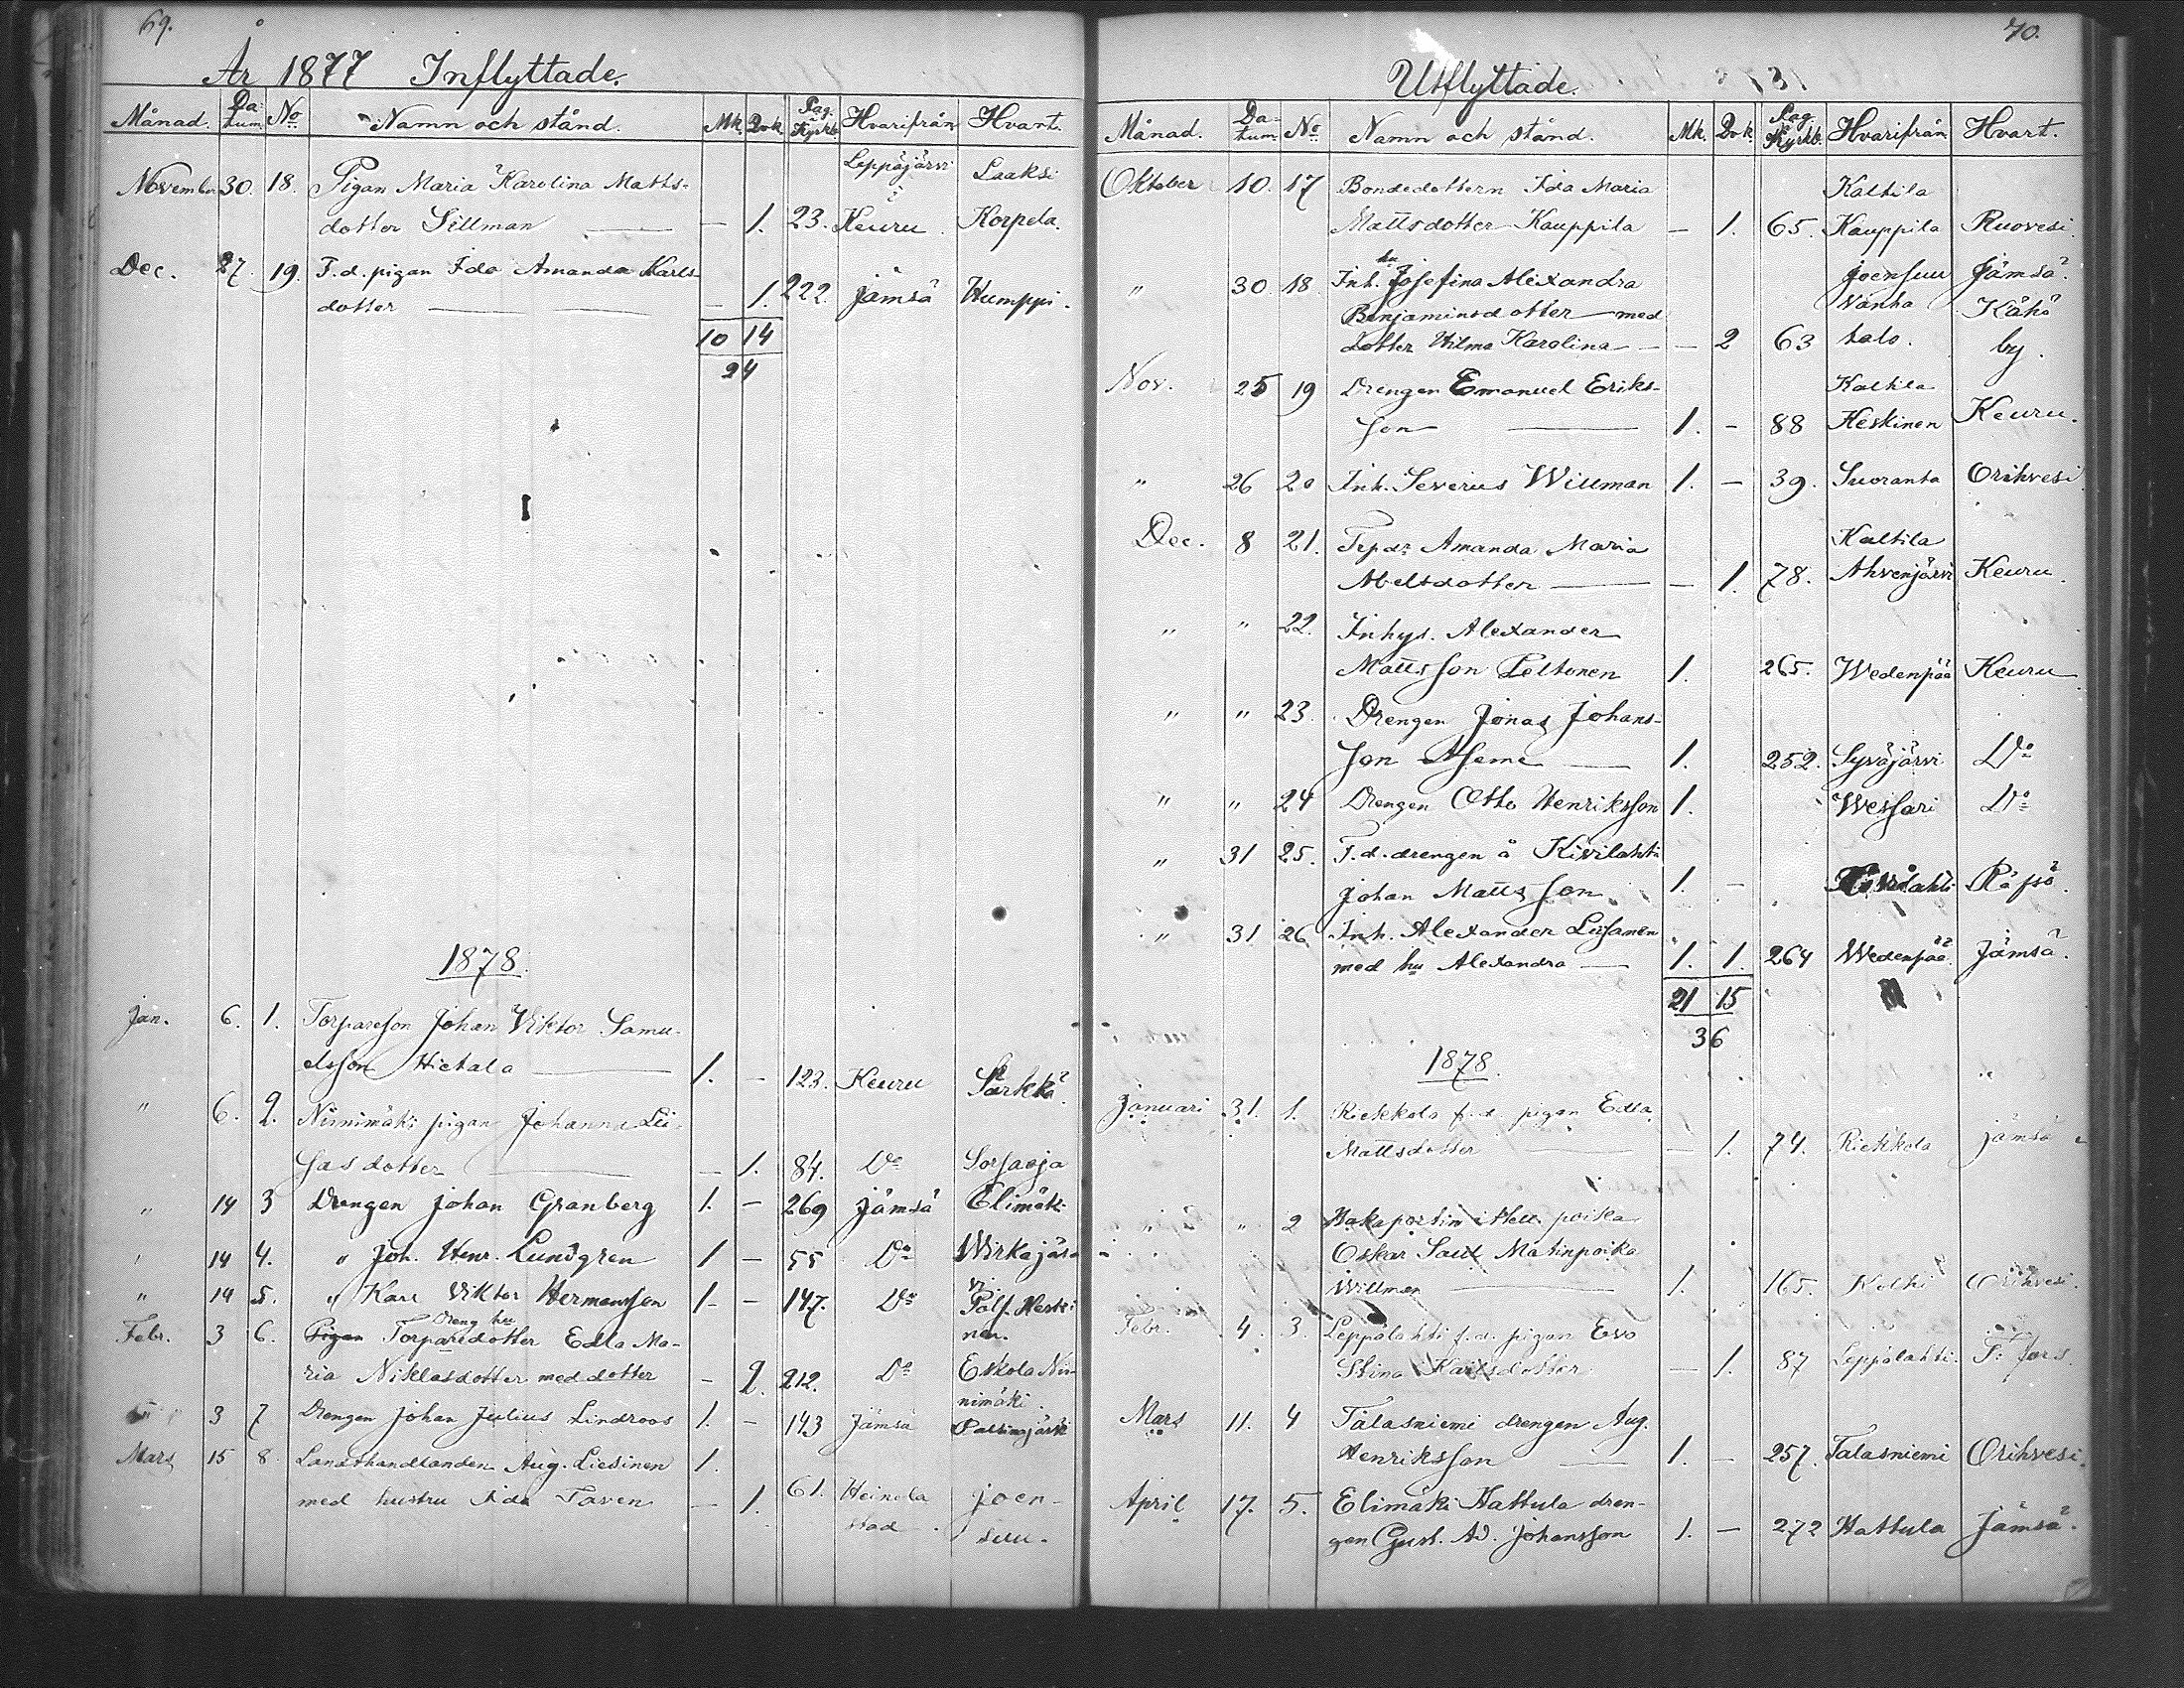 69.
År 1877 Inflyttade.
Månad. Da-tum No Namn och stånd. Mk. Qvk. Pag. i Kyrkb. Hvarifrån Hvart.
November 30. 18. Pigan Maria Karolina Matts- Leppäjärvi Laaksi
dotter Sillman — 1. 23. Keuru. Korpela.
Dec. 27. 19. F.d. pigan Ida Amanda Karls-
dotter — 1. 222. Jämsä Humppi.
10 14
24
1878.
Jan. 6. 1. Torpareson Johan Viktor Samu-
elsson Hietala 1. — 123. Keuru Särkkä.
" 6. 2. Niinimäki pigan Johanna
dotter — 1. 84. Do Sorsaoja
" 14 3 Drengen Johan Granberg 1. — 269 Jämsä Elimäki
" 14 4. " Joh. Henr. Lundgren 1 — 55 Do Wirkajär-
vi.
" 14 5. " Karl Viktor Hermansson 1. — 147. Do Heski-
nen.
Dreng hu
Febr. 3 6. Pigan Torparedotter Edla Ma-
ria Niklasdotter med dotter — 2. 212. Do Eskola Nii-
nimäki.
3 7 Drengen Johan Julius Lindroos 1. — 143 Jämsä
Mars 15 8. Landthandlanden Aug. Liesinen 1.
med hustru Ida Taven — 1. 61. Heinola Joen-
stad. suu.
70.
Utflyttade.
Månad. Da-tum No Namn och stånd. Mk. Qvk. Pag. i Kyrkb. Hvarifrån Hvart.
Oktober 10. 17 Bondedottern Ida Maria Kaltila
Mattsdotter Kauppila — 1. 65. Kauppila Ruovesi.
hu
" 30. 18. Inh. Josefina Alexandra Joensuu Jämsä
Benjaminsdotter med Vanha Kähö
dotter Hilma Karolina — 2 63 talo. by.
Nov. 25 19 Drengen Emanuel Eriks- Kaltila
son 1. — 88 Keskinen Keuru.
" 26 20 Inh. Severus Willman 1. — 39. Suoranta Orihvesi
Dec. 8 21. Tepdr Amanda Maria Kaltila
Abelsdotter — 1. 78. Ahvenjärvi Keuru.
" " 22. Inhys. Alexander
Mattsson Peltonen 1. 265. Wedenpää Keuru
" " 23. Drengen Jonas Johans-
son Aseme 1. 252. Syväjärvi Do
" " 24 Drengen Otto Henriksson 1. Wessari Do
" 31 25. F.d. drengen å Kivilahti
Johan Mattsson 1. — Kivilahti
" 31 26 Inh. Alexander Lusanen
med hu Alexandra 1. 1. 264 Wedenpää. Jämsä.
21 15
36
1878.
Januari 31. 1. Riekkola f.d. pigan Edla
Mattsdotter — 1. 74. Riekkola Jämsä
" " 2 poika
Oskar Matinpoika
Willman 1. 165. Orihvesi.
Febr. 4. 3. Leppälahti f.d. pigan Eva
Stina Karlsdotter — 1. 87 Leppälahti.
Mars 11. 4 Talasniemi drengen Aug.
Henriksson 1. — 257. Talasniemi Orihvesi.
April 17. 5. Elimäki Hattula dren-
gen Gust. Ad. Johansson 1. — 272 Hattula Jämsä.